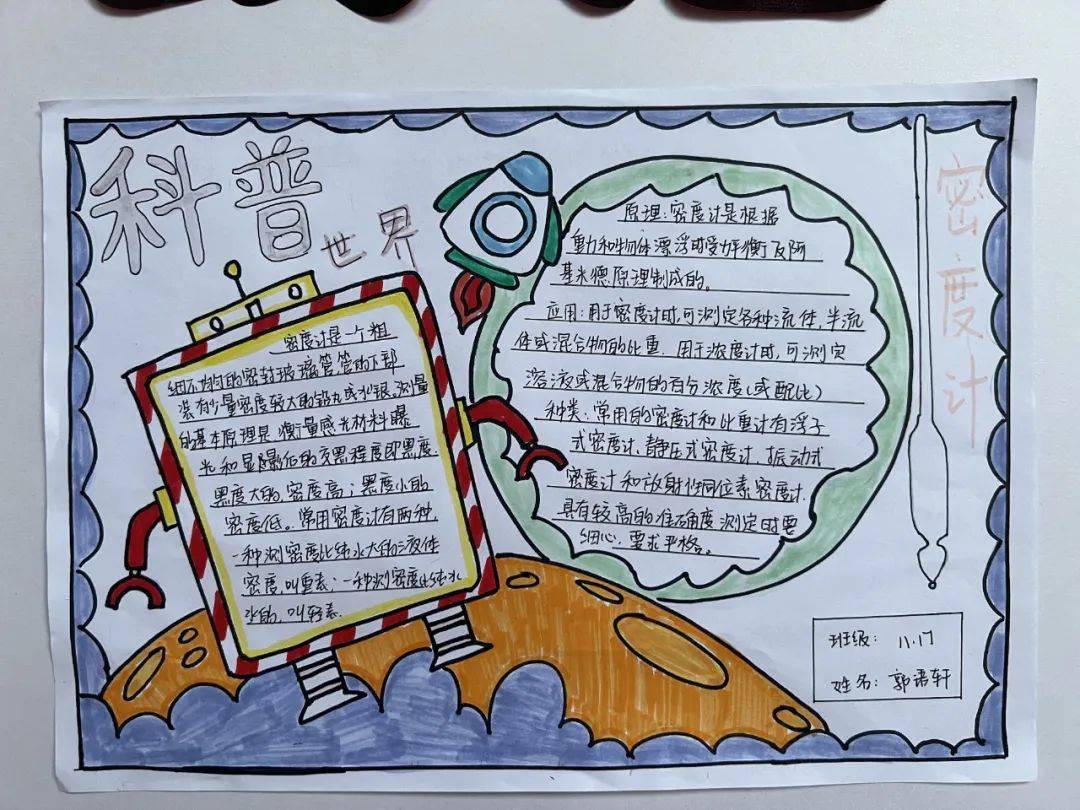 科普
世界
密度计是一个粗
细不均匀的密封玻璃管,管的下部
装有少量密度较大的铅丸或水银,测量
的基本原理是,衡量感光材料曝
光和显影后的变黑程度即黑度,
黑度大的,密度高;黑度小的
密度低。常用密度计有两种,
一种测密度比纯水大的液体
密度,叫重表;一种测密度比纯水
水的,叫轻表.
原理:密度计是根据
重力和物体漂浮时受力平衡及阿
基米德原理制成的。
应用:用于密度计时,可测定各种流体,半流
体或混合物的比重.用于浓度计时,可测定
溶液或混合物的百分浓度(或配比)
种类:常用的密度计和比重计有浮子
式密度计、静压式密度计、振动式
密度计和放射性同位素密度计.
具有较高的准确度,测定时要
细心,要求严格。
密度计
班级: 八.17
姓名:郭语轩